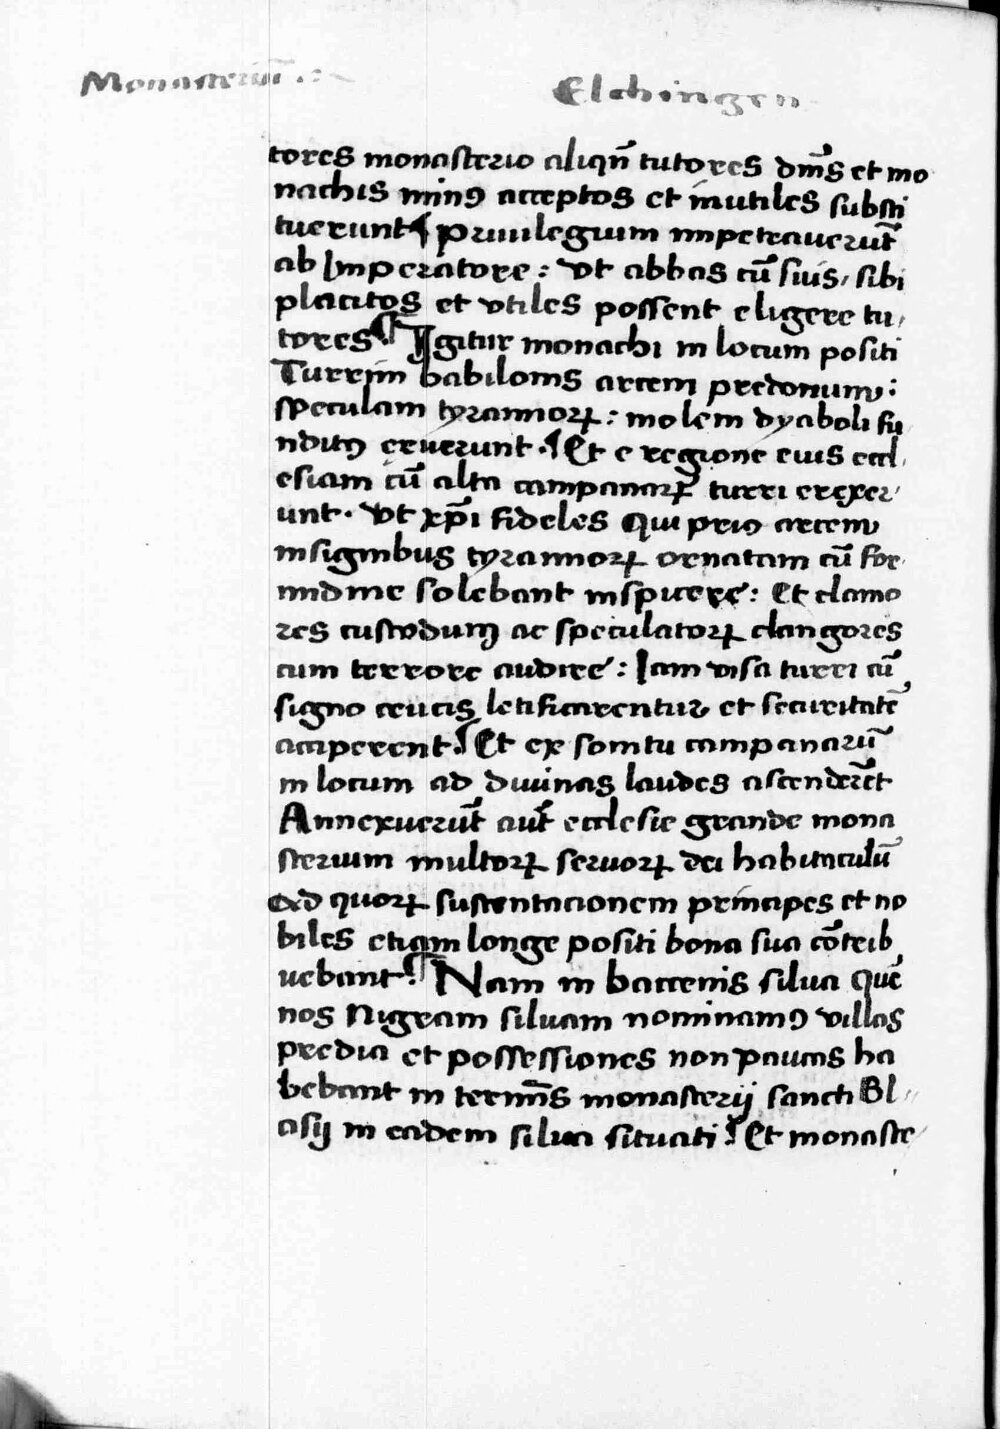 Monasteriū .:~ Elchingen
tores monasterio aliqn̄ tutores dm̄s et mo
nachis minꝰ acceptos et inutiles substi
tuerunt¶ priuilegium impetrauerūt
ab Imperatore : Vt abbas cū suis, sibi
placitos et vtiles possent eligere tu,
tores ¶ Igitur monachi in locum positi
Turrim babilonis arcem predonum :
speculam tyrannoꝝ : molem dyaboli fu
nditꝰ eruerunt .¶ Et e regione eius eccl,
esiam cū alta campanarꝝ turri erexer,
unt. Vt xp̄i fideles qui priꝰ arcem
insignibus tyrannoꝝ ornatam cū for,
midine solebant inspicere : Et clamo
res custodum ac speculatoꝝ clangores
cum terrore audire : Iam visa turri cū
signo crucis letificarentur et securitatē
acciperent ¶ Et ex somtu campanarū
in locum ad diuinas laudes ascenderēt
Annexuerūt aūt ecclesie grande mona
sterium multoꝝ seruoꝝ dei habitaculū
Ad quoꝝ sustentacionem principes et no
biles etiam longe positi bona sua cōtrib
uebant ¶ Nam in barrenis silua quē
nos Nigram siluam nominamꝰ villas
predia et possessiones non paucas ha
bebant in termīs monasterij sancti Bl,
asij in eadem silua situati ¶ Et monaste